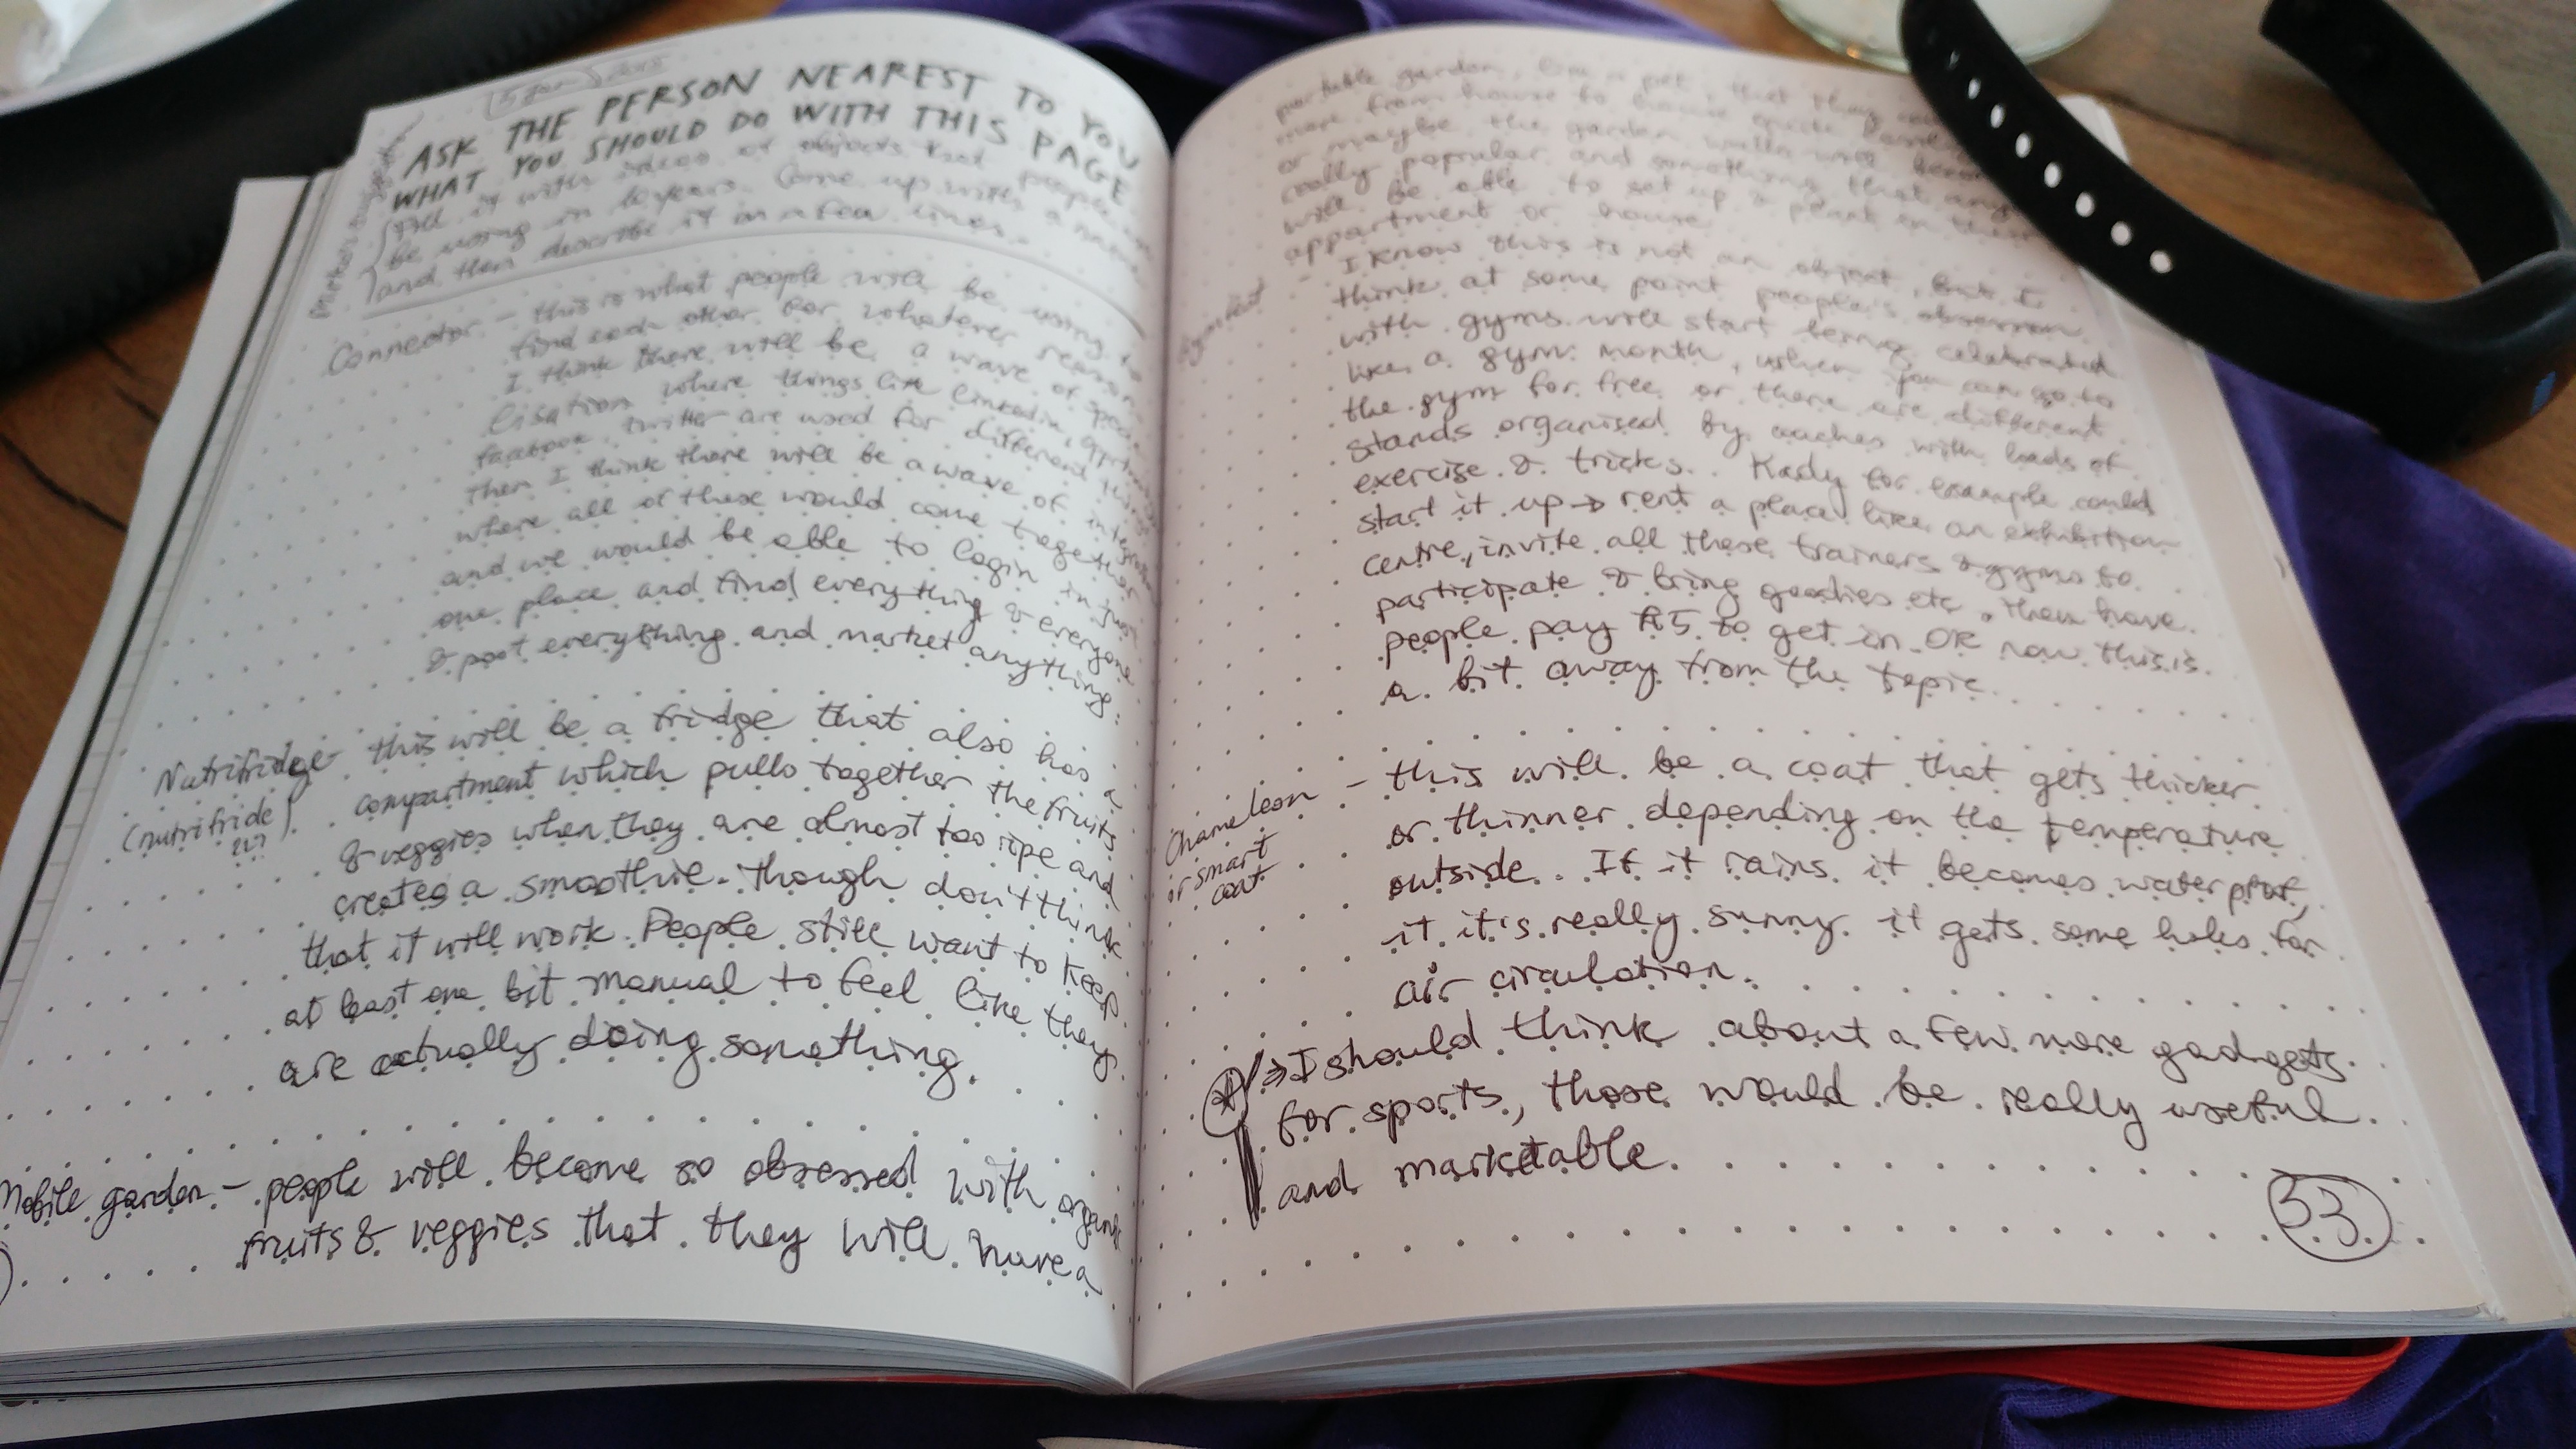 5 Jan
ASK THE PERSON NEAREST TO YOU
WHAT YOU SHOULD DO WITH THIS PAGE
Fill it with ideas of objects that people
be using in 10 years. Come up with a name
and then describe it in a few lines.
Connector - this is what people will be using to
find each other for whatever reason
I think there will be a wave of specia
lisation where things like linkedin,
facebook, twitter are used for different things
then I think there will be a wave of integration
where all of these would come together
and we would be able to login in just
one place and find everything & everyone
& post everything and market anything.
Nutrifridge - this will be a fridge that also has a
(nutrifride compartment which pulls together the fruits
??) & veggies when they are almost too ripe and
creates a smoothie. though don't think
that it will work. People still want to keep
at least one bit manual to feel like they
are actually doing something.
Mobile garden - people will become so obsessed with organic
fruits & veggies that they will have a
portable garden, like a pet, that they
move from house to house quite
or maybe the garden walls will become
really popular and something that any
will be able to set up & plant in their
appartment or house
Gymfest - I know this is not an object, but I
think at some point people's obsession
with gyms will start being celebrated
like a gym month, when you can go to
the gym for free or there are different
stands organised by coaches with loads of
exercise & tricks. Kady for example could
start it up → rent a place like an exhibition
centre, invite all these trainers & gyms to
participate & bring goodies etc, then have
people pay £5 to get in. OK now this is
a bit away from the topic.
Chameleon - this will be a coat that gets thicker
or smart or thinner depending on the temperature
coat outside. If it rains it becomes waterproof,
if it's really sunny it gets some holes for
air circulation.
⇒ I should think about a few more gadgets
for sports, those would be really useful
and marketable.
33